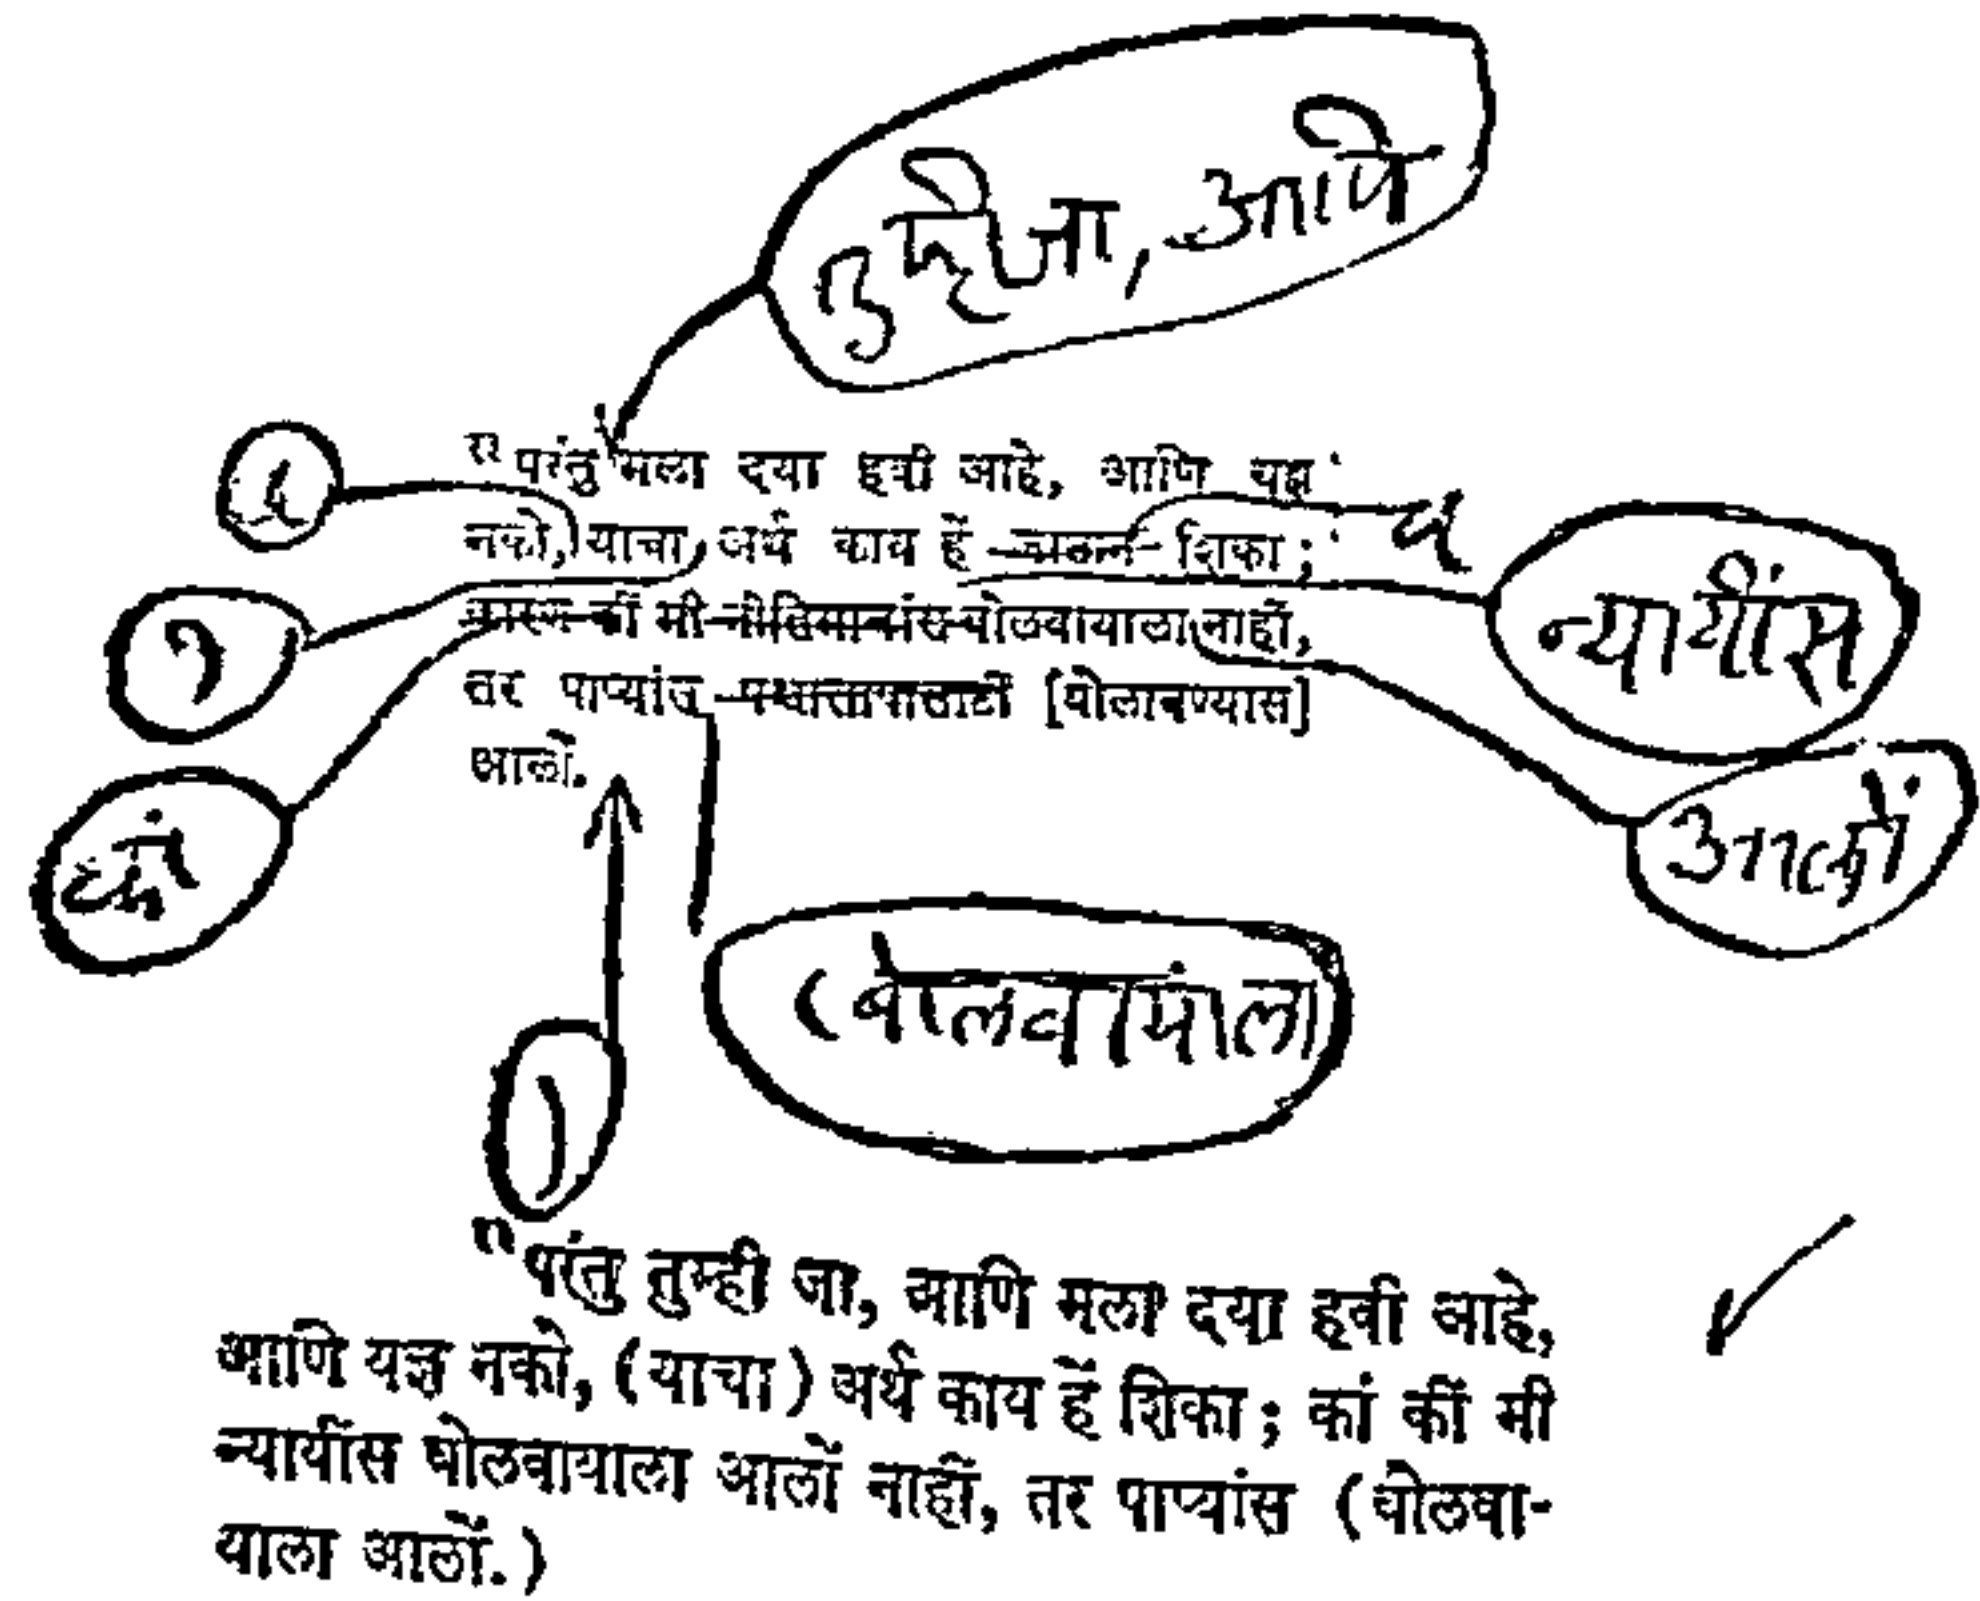 तुम्ही जा, आणि
" परंतु मला दया हवी आहे, आणि यज्ञ
नको, याचा अर्थ काय हें जाऊन शिका ;
कारण कीं मी नीतिमानांस बोलवायाला नाहीं,
न्यायींस
तर पाप्यांस पश्चात्तापासाठीं [बोलावण्यास]
आलों.
कां
आलों
(बोलवायाला
)
" परंतु तुम्ही जा, आणि मला दया हवी आहे,
आणि यज्ञ नको, (याचा) अर्थ काय हें शिका ; कां कीं मी
न्यायींस बोलवायाला आलों नाहीं, तर पाप्यांस (बोलवा-
याला आलों.)